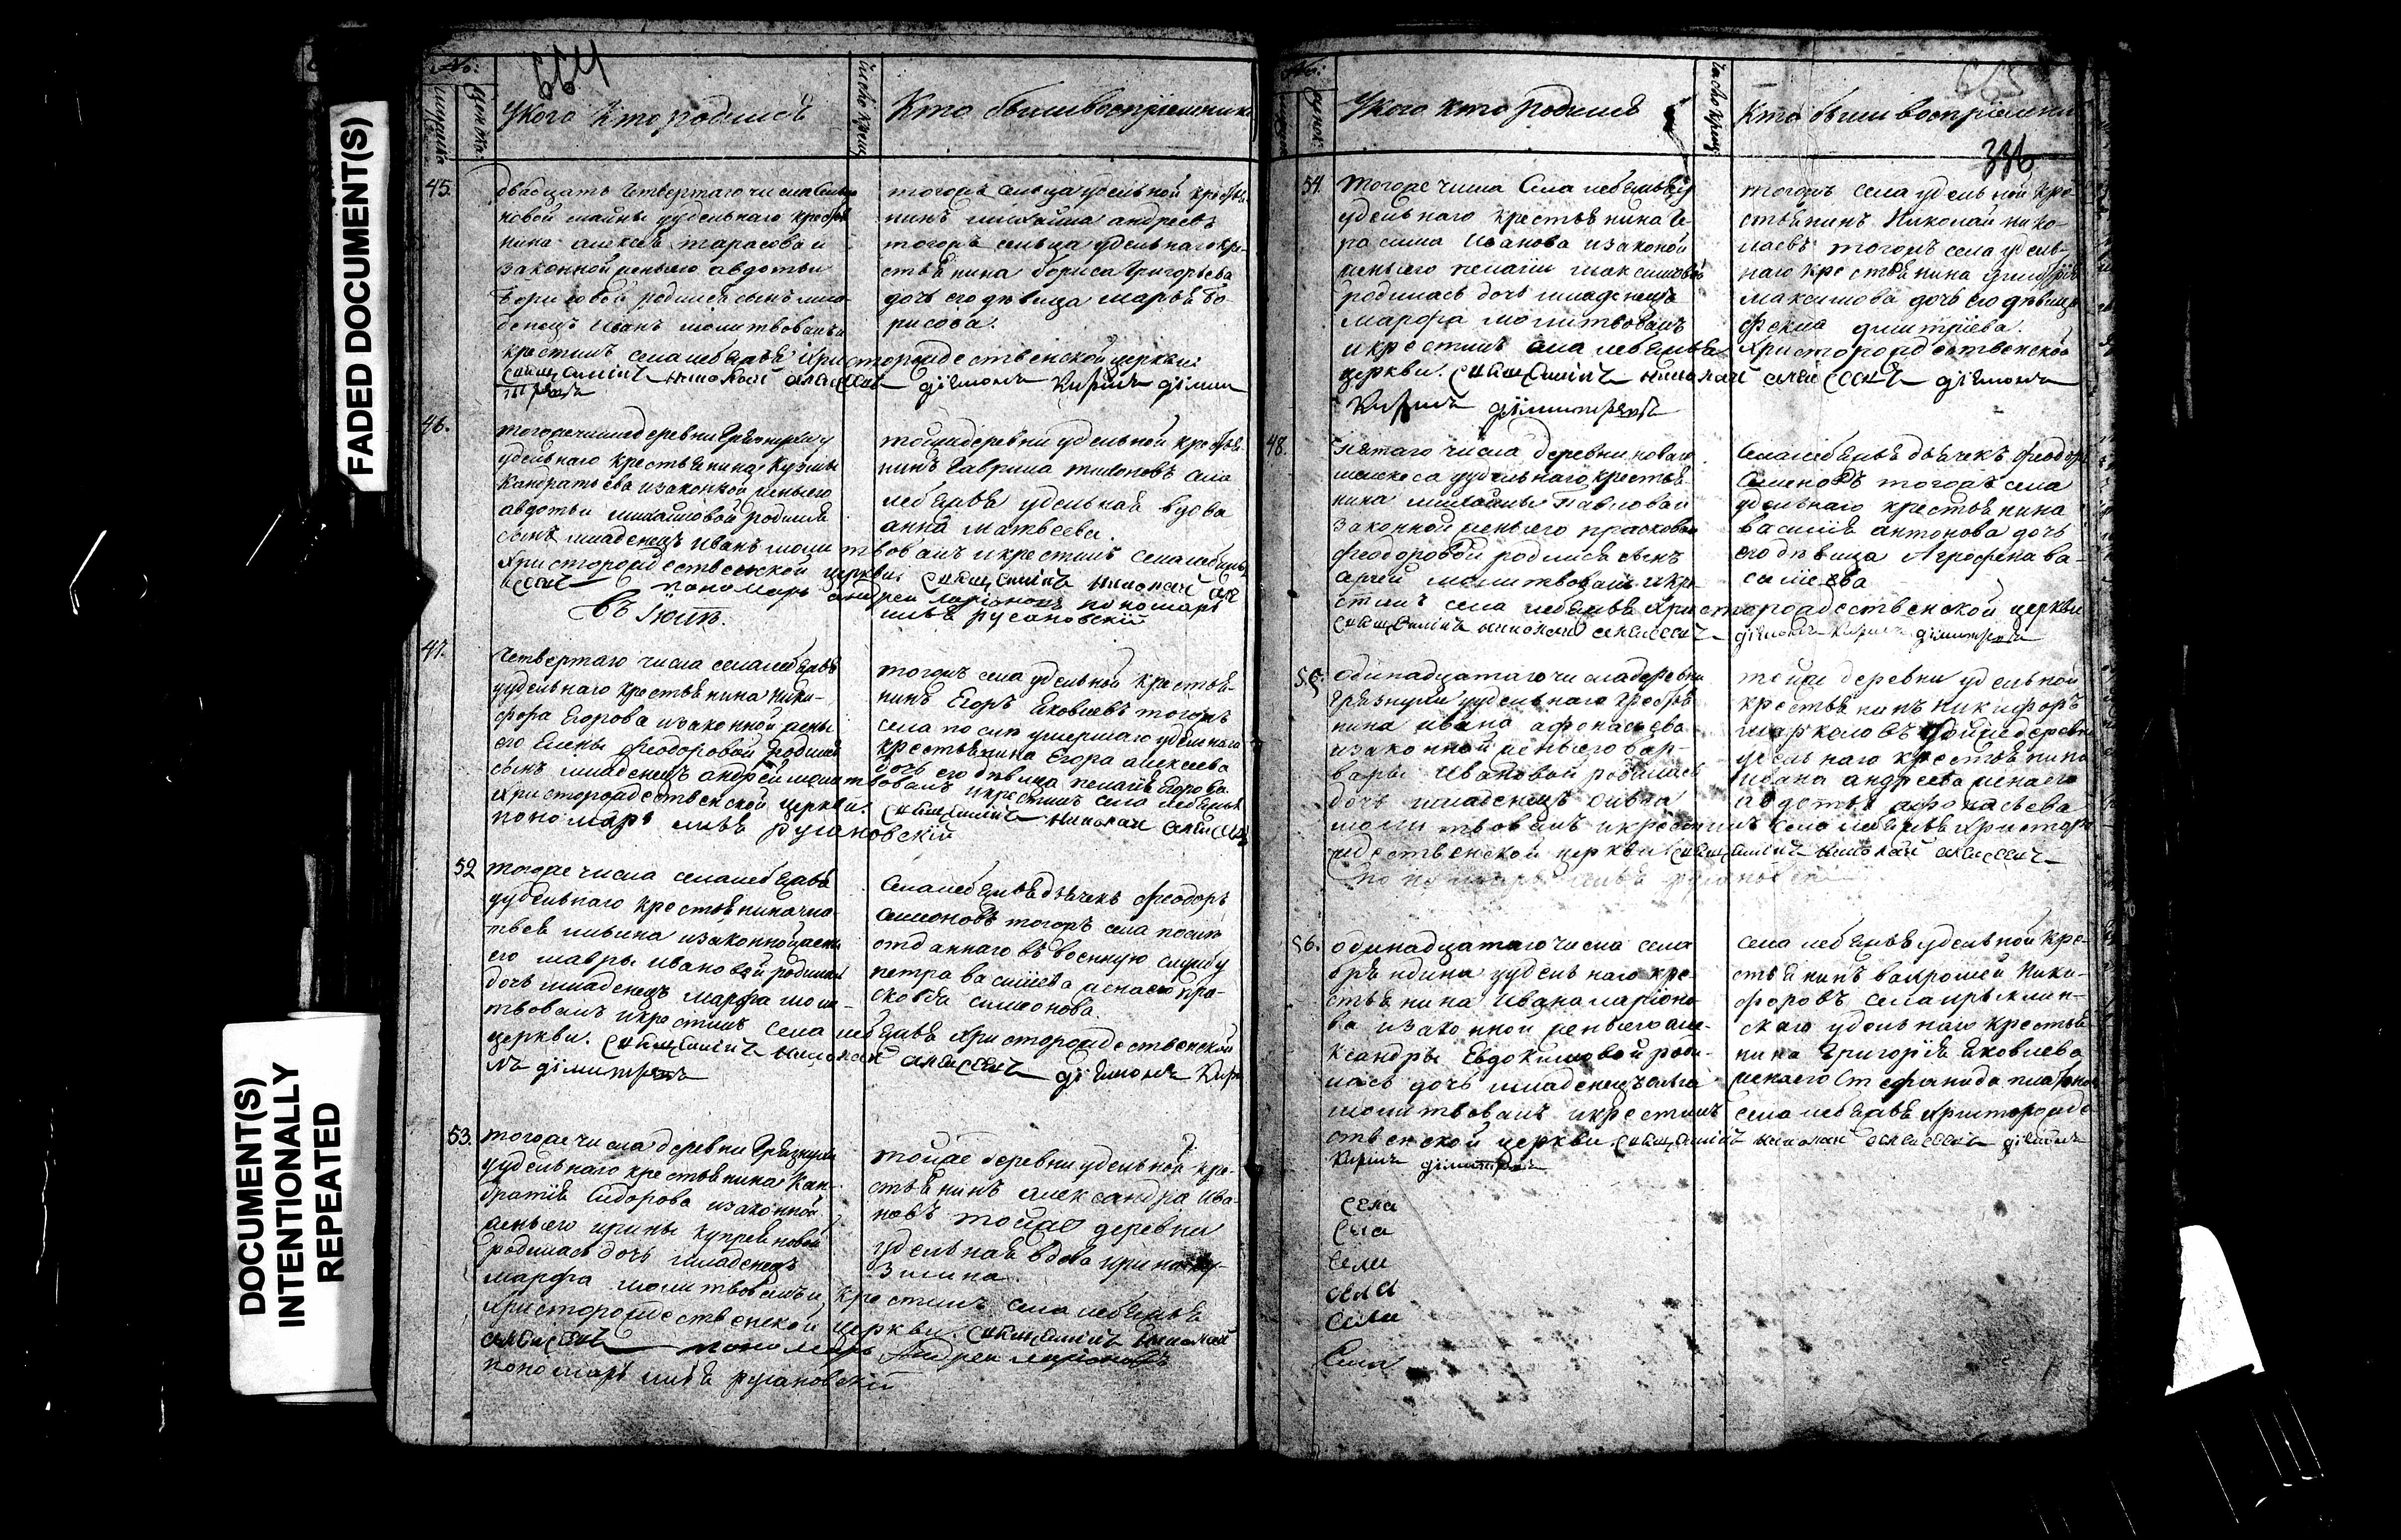 FADED DOCUMENT(S)
DOCUMENT(S)
INTENTIONALLY
REPEATED
664
№:
Укого Кто родился
число крещ
Кто были восприемники
45.
двадцать четвертаго числа сельца
новой майны удельнаго крестья
нина алексея тарасова и
законной жены его авдотьи
Борисовой родился сынъ мла
денецъ Иванъ молитвовалъ и
крестилъ села лебяжья Христорождественской церкви
священникъ николай алексеевъ діяконъ Кирилъ діими
тріевъ
тогожъ сельца удельной крестья
нинъ михайла андреевъ
тогожъ сельца удельнаго кре
стьянина бориса Григорьева
дочь его девица марья Бо
рисова.
46.
тогоже числа деревни Грязнухи у
удельнаго крестьянина Кузмы
Кандратьева изаконной жены его
авдотьи михайловой родился
сынъ младенецъ иванъ молитвовалъ и крестилъ села лебяжья
Христорождественской церкви священникъ николай але
ксеевъ пономарь андрей ларіоновъ пономарь
илья русановскій
тояже деревни удельной крестья
нинъ Гаврила села
лебяжья удельная вдова
анна матвеева.
Въ Іюле.
47.
Четвертаго числа села лебяжья
уудельнаго крестьянина Ники-
фора Егорова изаконной жены
его Елены Феодоровой родился
сынъ младенецъ андрей молитвовалъ и крестилъ села лебяжья
Христорождественской церкви. священникъ николай алексеевъ
пономарь илья русановскій
тогожъ села удельной крестья-
нинъ Егоръ Яковлевъ тогожъ
села после умершаго удельнаго
крестьянина Егора алексеева
дочь его девица пелагея Егорова
52
тогоже числа села лебяжья
уудельнаго крестьянина ма-
твея ильина изаконной жены
его мавры ивановой родилась
дочь младенецъ марфа моли-
твовалъ и крестилъ села лебяжья Христорождественской
церкви. священникъ николай алексеевъ діяконъ Кири
лъ діимитріевъ
Села лебяжья дьячекъ Феодоръ
симоновъ тогожъ села после
отданнаго въ военную службу
петра василева жена его пра-
сковья симонова.
53.
тогоже числа деревни Грязнухи
уудельнаго крестьянина Кан-
братія Сидорова изаконной
жены его ирины купреяновой
родилась дочь младенецъ
марфа молитвовалъ и крестилъ села лебяжья
Христорождественской церкви. священникъ николай
алексеевъ пономарь Андрей ларіоновъ
пономарь илья русановскій
тояже деревни удельной кре-
стьянинъ александра ива-
новъ тояже деревни
удельная вдова ирина ку-
змина.
665
336
№:
Укого кто родился
число крещ
Кто были восприемники
54.
Тогоже числа Села лебяжья у
удельнаго крестьянина Ге-
расима Иванова изаконой
жены его пелагеи максимовой
родилась дочь младенецъ
марфа молитвовалъ
и крестилъ села лебяжья Христорождественской
церкви. священникъ николай алексеевъ діяконъ
Кирилъ діимитріевъ
тогожъ села удельной кре-
стьянинъ Николай нико-
лаевъ тогожъ села удель-
наго крестьянина димитрія
максимова дочь его девица
фекла дмитріева.
48.
Пятаго числа деревни новаго
уудельнаго крестья
нина михайлы Павлова и
законной жены его прасковьи
феодоровой родился сынъ
сергей молитвовалъ и кре-
стилъ села лебяжья Христорождественской церкви
священникъ николай алексеевъ діяконъ Кирилъ діимитріевъ
Села лебяжья дьячекъ Феодоръ
Симоновъ тогожъ села
удельнаго крестьянина
василія антонова дочь
его девица Агрофена ва-
силиева
55.
одинадцатаго числа деревни
Грязнухи уудельнаго крестья
нина ивана афонасьева
изаконной жены его вар-
вары Ивановой родилась
дочь младенецъ
молитвовалъ и крестилъ села лебяжья Христоро
ждественской церкви священникъ николай алексеевъ
пономарь илья русановскій
тояже деревни удельной
крестьянинъ Никифоръ
марколовъ тояже деревни
удельнаго крестьянина
ивана андреева жена его
авдотья афонасьева
56.
одинадцатаго числа села
бряндина уудельнаго кре-
стьянина Ивана ларіоно
ва изаконной жены его але-
ксандры Евдокимовой роди-
лась дочь младенецъ ольга
молитвовалъ и крестилъ села лебяжья Христорожде
ственской церкви. священникъ николай алексеевъ діяконъ
Кирилъ діимитріевъ
села лебяжья удельной кре-
стьянинъ варфоломей Ники-
форовъ села
скаго удельнаго крестья
нина Григорія Яковлева
жена его Стефанида платонова
села
села
села
села
села
Села